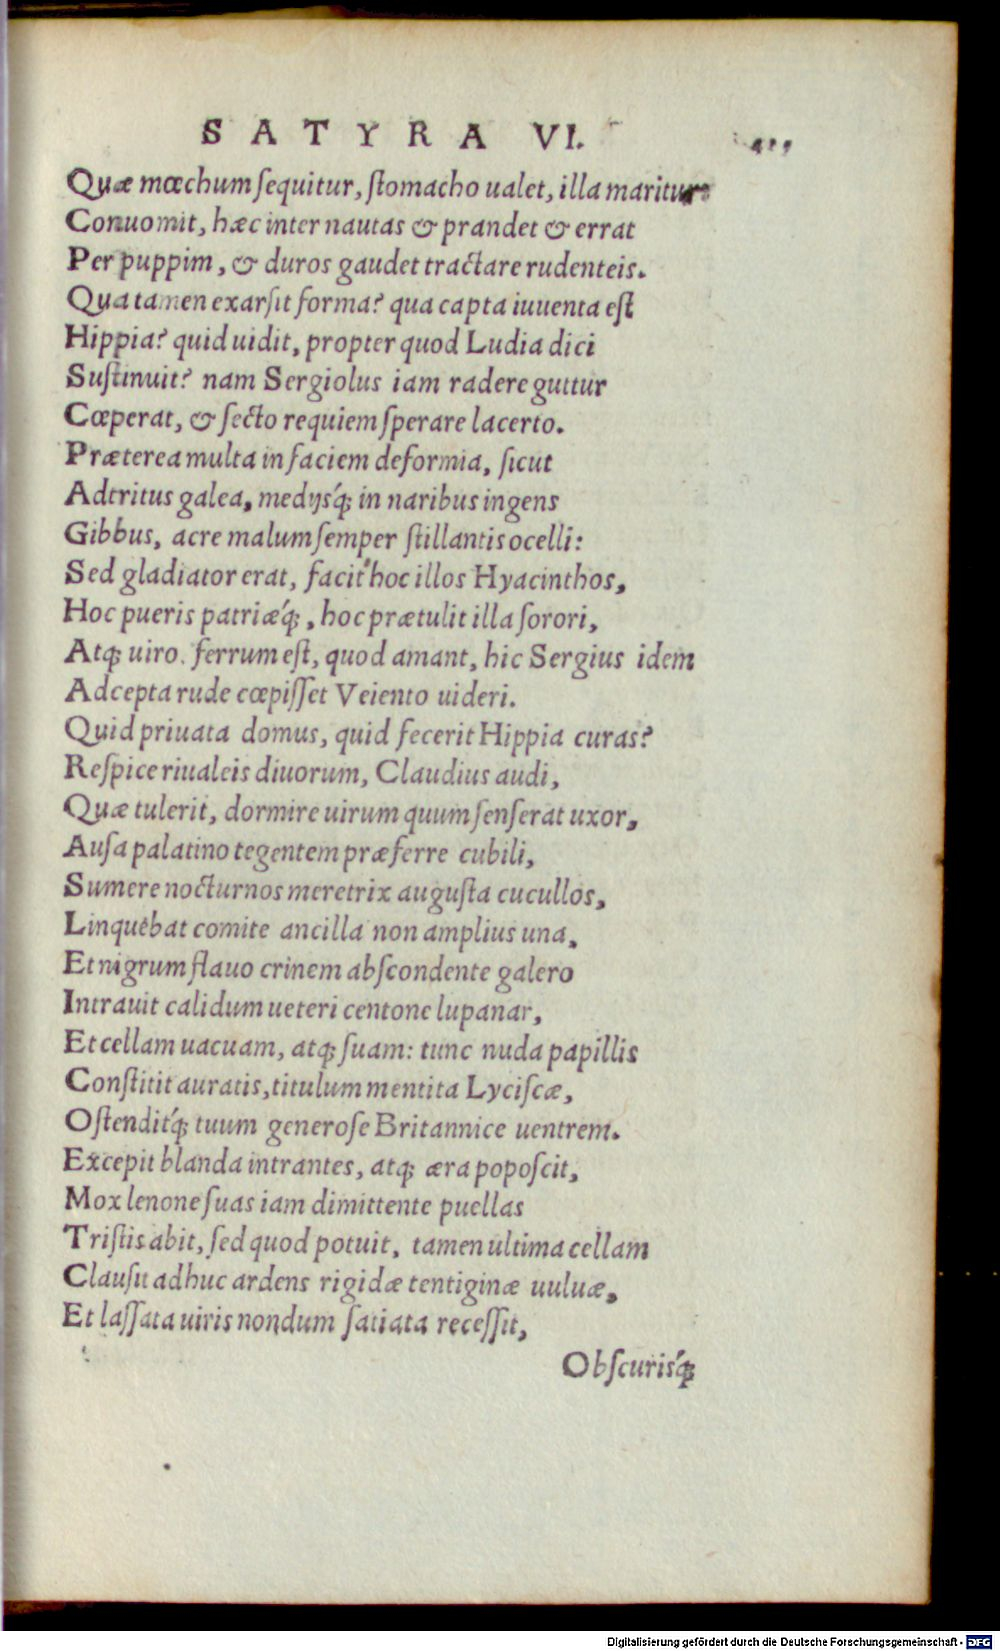 SATYRA VI.
Quæ mœchum ſequitur, ſtomacho ualet, illa maritum
Conuomit, hæc inter nautas & prandet & errat
Per puppim, & duros gaudet tractare rudenteis.
Qua tamen exarſit forma? qua capta iuuenta eſt
Hippia? quid uidit, propter quod Ludia dici
Suſtinuit? nam Sergiolus iam radere guttur
Cœperat, & ſecto requiem ſperare lacerto.
Præterea multa in faciem deformia, ſicut
Adtritus galea, medijsq́; in naribus ingens
Gibbus, acre malum ſemper ſtillantis ocelli:
Sed gladiator erat, facit hoc illos Hyacinthos,
Hoc pueris patriæq́;, hoc prætulit illa ſorori,
Atq; uiro. ferrum eſt, quod amant, hic Sergius idem
Adcepta rude cœpiſſet Veiento uideri.
Quid priuata domus, quid fecerit Hippia curas?
Reſpice riualeis diuorum, Claudius audi,
Quæ tulerit, dormire uirum quum ſenſerat uxor,
Auſa palatino tegentem præferre cubili,
Sumere nocturnos meretrix auguſta cucullos,
Linquêbat comite ancilla non amplius una,
Et nigrum flauo crinem abſcondente galero
Intrauit calidum ueteri centone lupanar,
Et cellam uacuam, atq; ſuam: tunc nuda papillis
Conſtitit auratis, titulum mentita Lyciſcæ,
Oſtenditq́; tuum generoſe Britannice uentrem.
Excepit blanda intrantes, atq; æra popoſcit,
Mox lenone ſuas iam dimittente puellas
Triſtis abit, ſed quod potuit, tamen ultima cellam
Clauſit adhuc ardens rigidæ tentiginæ uuluæ,
Et laſſata uiris nondum ſatiata receſſit,
Obſcurisq́;
Digitalisierung gefördert durch die Deutsche Forschungsgemeinschaft - DFG